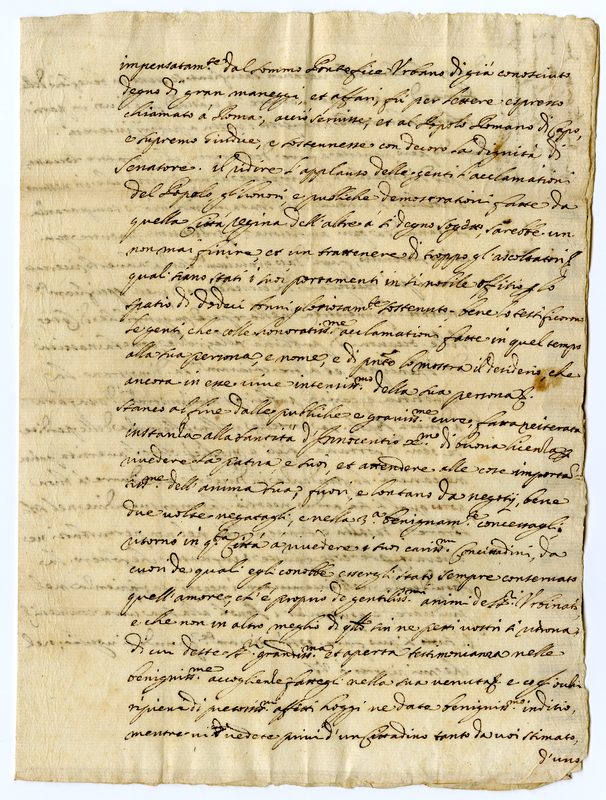 impensatam.te dal sommo Pontefice Urbano di già conosciuto
degno di gran maneggi, et affari, fù per lettere espresso
chiamato à Roma, acciò servisse, et al Popolo Romano di Capo,
e supremo Giudice, e sostennesse con decoro la dignità di
Senatore. il ridire l'applauso delle genti l'acclamationi
del Popolo gl'honori, e publiche demostrationi fatte da
quella Città Regina dell'altre a sì degno sogetto, sarebbe un
non mai finire, et un trattenere di troppo gl'ascoltatori
quali siano stati i suoi portamenti in sì nobile offitio lo
spatio di dodeci anni gloriosam.te sostenuto bene lo testificorno
le genti, che colle honoratiss.me acclamationi fatte in quel tempo
alla sua persona e nome, e di lo mostra il desiderio che
ancora in esse vive intensiss.mo della sua persona.
Stanco al fine dalle publiche e graviss.me cure, fatta reiterata
instanza alla Santità d'Innocentio X.mo di buona licenza
rivedere la Patria e suoi, et attendere alle cose importa-
tiss.me dell'anima sua, fuori, e lontano da negotij, bene
due volte negatagli, e nella 3.a benignam.te concessagli
ritornò in q.ta Città à rivedere i suoi cariss.mi Concittadini, da
cuori de quali egli conobbe essergli stato sempre conservato
quell'amore, ch'è proprio de gentiliss.mi animi de SS.ri Urbinati
e che non in altro meglio di q.llo sin ne petti vostri si ritrova
di cui deste grandiss.ma et aperta testimonianza nelle
benigniss.me accoglienze fattegli nella sua venuta, e
ripiena di affetti hoggi ne date benigniss.mo inditio,
mentre vi vedete privi d'un Cittadino tanto da voi stimato,
d'uno